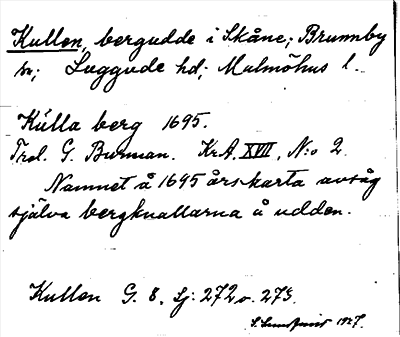 Kullen, bergudde i Skåne; Brunnby
sn; Luggude hd; Malmöhus l.
Kúlla berg 1695.
Trol. G. Burman. Kr.A. XVII, N:o 2
Namnet å 1695 års karta avsåg
själva bergknallarna å udden.
Kullen G. 8, Sj: 272 o. 273.
S. Lundqvist 1927.